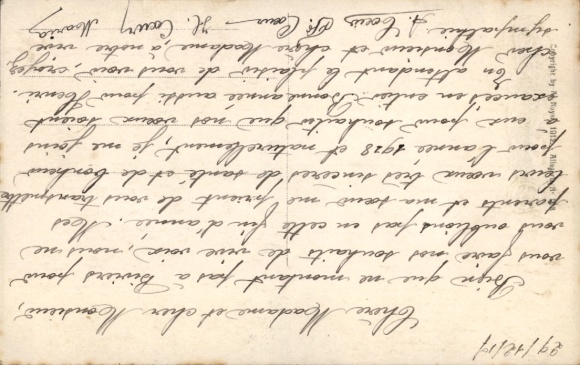 29/12/17
Chère Madame et cher Monsieur,
Bien que ne montant pas à Biviers pour
vous faire nos souhaits de vive voix, nous ne
vous oublions pas en cette fin d'année. Mes
parents et ma sœur me prient de vous transmettre
leurs vœux très sincères de santé et de bonheur
pour l'année 1918 et naturellement, je me joins
à eux pour souhaiter que nos vœux soient
exaucés en entier. Bonne année aussi pour Henri.
En attendant le plaisir de vous voir, croyez,
cher Monsieur et chère Madame à notre vive
sympathie.
Copyright by